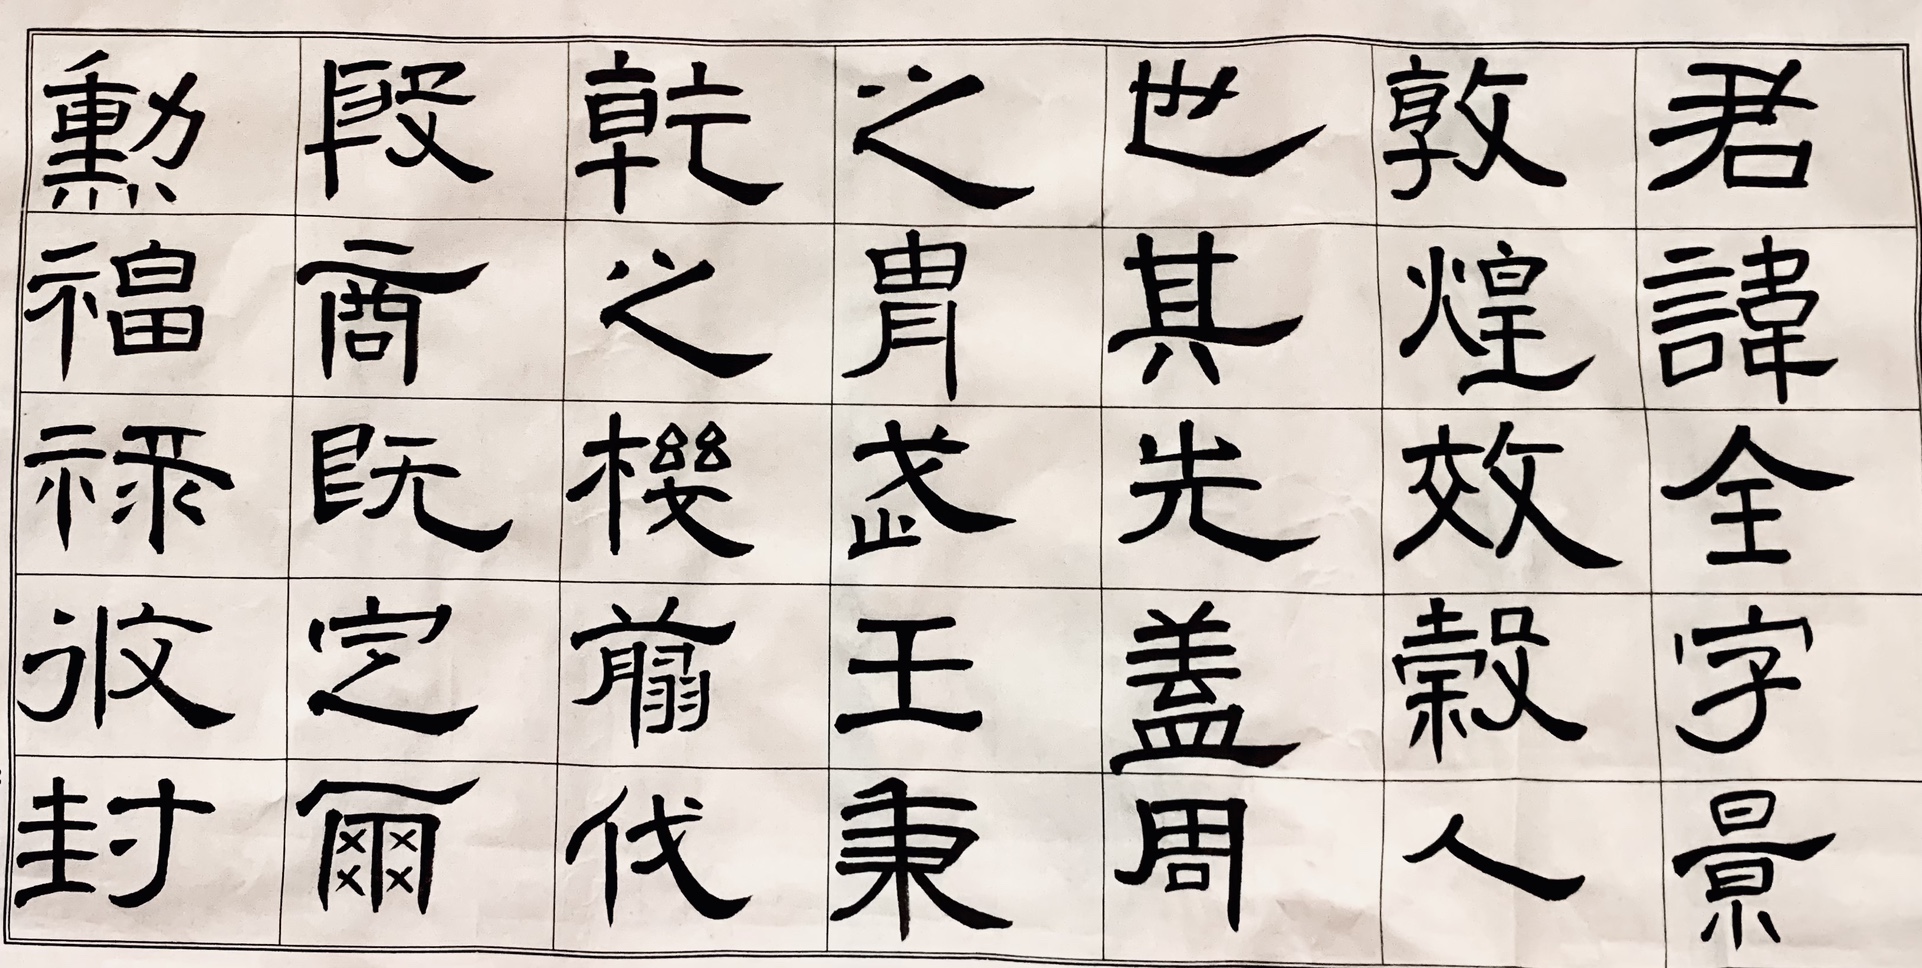 君諱全字景
敦煌效穀人
也其先盖周
之胄武王秉
乾之機翦伐
殷商既定爾
勳福祿攸封